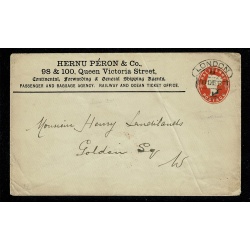 HERNU PÉRON & Co.,
98 & 100, Queen Victoria Street,
Continental, Forwarding & General Shipping Agents,
PASSENGER AND BAGGAGE AGENCY. RAILWAY AND OCEAN TICKET OFFICE.
LONDON
DE
Monsieur Henry
Golden Sq
W